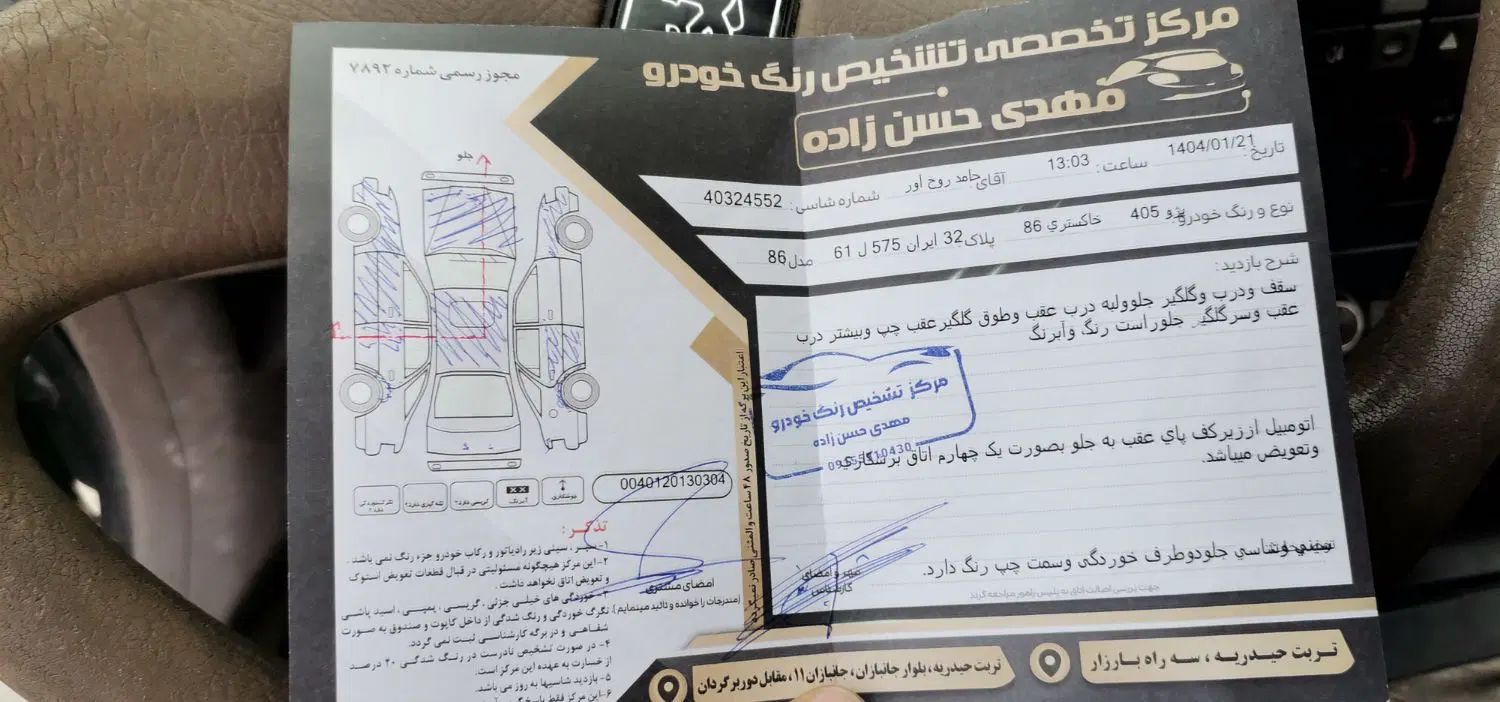 مرکز تخصصی تشخیص رنگ خودرو
مهدی حسن زاده
مجوز رسمی شماره ۷۸۹۲
تاریخ: 1404/01/21 ساعت: 13:03 آقای: حامد روح اور شماره شاسی: 40324552
نوع و رنگ خودرو: پژو 405 خاکستري 86 پلاک 32 ایران 575 ل 61 مدل 86
شرح بازدید:
سقف ودرب وگلگیر جلوولبه درب عقب وطوق گلگیرعقب چپ وبیشتر درب
عقب وسرگلگیر جلوراست رنگ وآبرنگ
مرکز تشخیص رنگ خودرو
مهدی حسن زاده
اتومبیل اززیرکف پاي عقب به جلو بصورت یک چهارم اتاق برشکاري
وتعویض میباشد.
وشاسي جلودوطرف خوردگی وسمت چپ رنگ دارد.
مهر و امضای
کارشناس
جهت بررسی اصالت اتاق به پلیس راهور مراجعه گردد
جلو
جوشکاری
آبرنگ
گریسی دارد؟
0040120130304
اعتبار این برگه از تاریخ صدور ۴۸ ساعت و المثنی صادر نمیگردد
امضای مشتری
(مندرجات را خوانده و تائید مینمایم).
تذکر:
۱- سپر ، سینی زیر رادیاتور و رکاب خودرو جزء رنگ نمی باشد .
۲- این مرکز هیچگونه مسئولیتی در قبال قطعات تعویض استوک
و تعویض اتاق نخواهد داشت.
۳- خوردگی های خیلی جزئی ، گریسی ، پمپی ، اسید پاشی
تگرگ خوردگی و رنگ شدگی از داخل کاپوت و صندوق به صورت
شفاهی و در برگه کارشناسی ثبت نمی گردد.
۴- در صورت تشخیص نادرست در رنگ شدگی ۲۰ درصد
از خسارت به عهده این مرکز است.
۵- بازدید شاسیها به روز می باشد.
۶- این مرکز فقط
تربت حیدریه ، سه راه بارزار
تربت حیدریه، بلوار جانبازان، جانبازان ۱۱، مقابل دوربرگردان